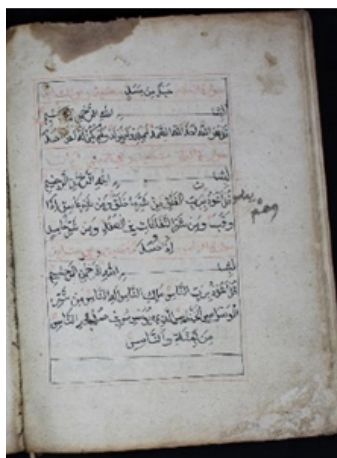 حبل من مسد
بسم الله الرحمن الرحيم
قل هو الله احد الله الصمد لم يلد ولم يولد ولم يكن له كفوا احد
بسم الله الرحمن الرحيم
قل اعوذ برب الفلق من شر ما خلق ومن شر غاسق اذا
وقب ومن شر النفاثات في العقد ومن شر حاسد
اذا حسد
بسم الله الرحمن الرحيم
قل اعوذ برب الناس ملك الناس اله الناس من شر
الوسواس الخناس الذي يوسوس في صدور الناس
من الجنة والناس